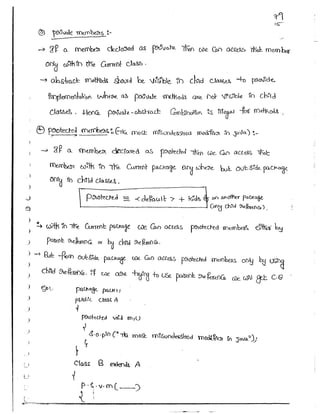 ③ private members :-
→ If a member declared as private then we can access that member
only within the current class.
→ abstract methods should be visible in child classes to provide
implementation where as private methods are not visible in child
classes. Hence private-abstract combination is illegal for methods.
④ protected members: (The most misunderstood modifier in java) :-
→ If a member declared as protected then we can access that
member with in the current package any where but outside package
only in child classes.
protected = <default> + kids of an another package
(only child reference).
→ with in the current package we can access protected members either by
parent reference or by child reference.
→ But from outside package we can access protected members only by using
child reference. if we are trying to use parent reference we will get C.E
package pack1;
public class A
{
protected void m1()
{
S.o.pln("The most misunderstood modifier in java");
}
}
class B extends A
{
p.s.v.m(——)
{